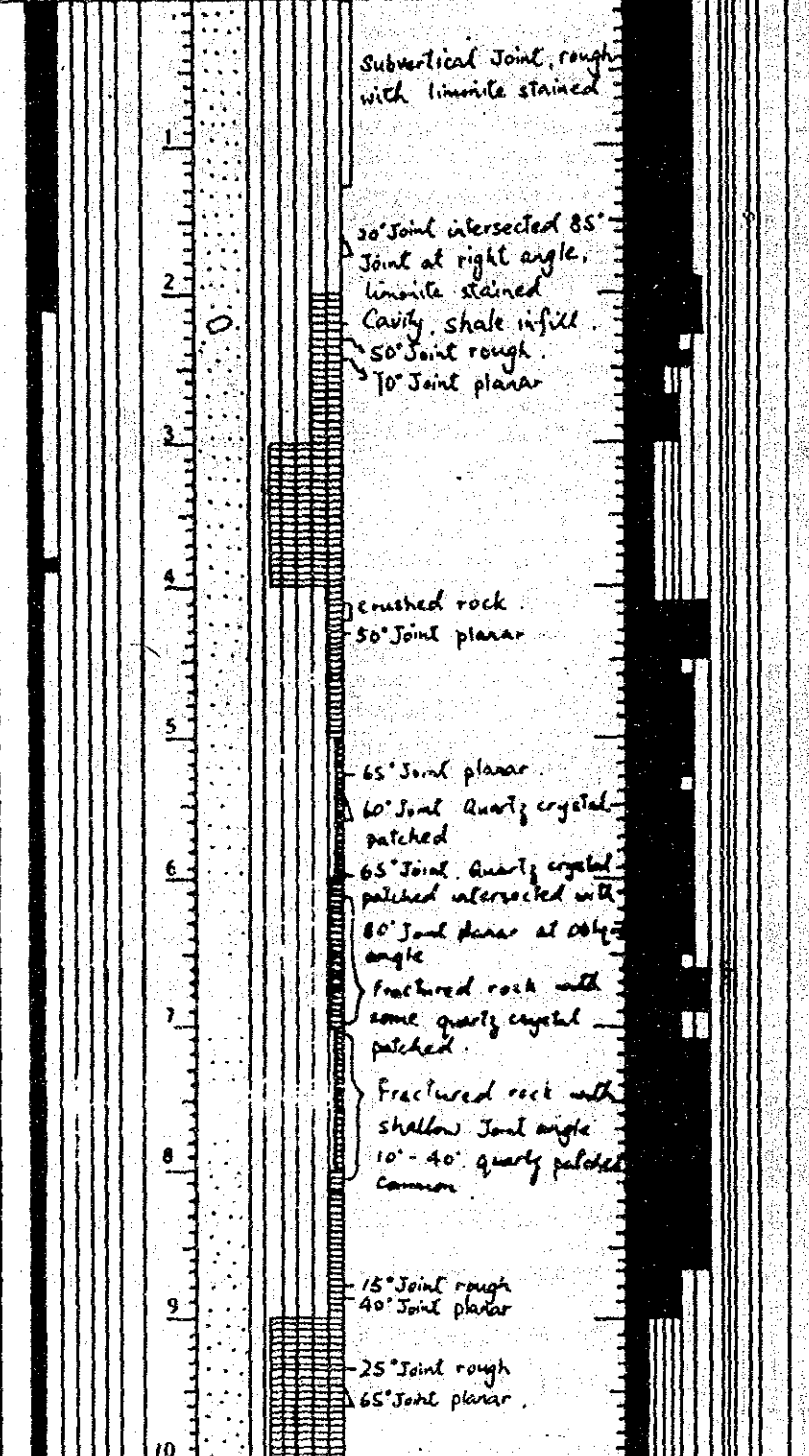 Subvertical Joint, rough
with limonite stained
1
20° Joint intersected 85°
Joint at right angle,
2
limonite stained
Cavity, shale infill.
50° Joint rough.
70° Joint planar
3
4
crushed rock.
50° Joint planar
5
65° Joint planar.
60° Joint Quartz crystal
patched
6
65° Joint, Quartz crystal
patched intersected with
80° Joint planar at
angle
fractured rock with
7
some quartz crystal
patched.
Fractured rock with
shallow Joint angle
8
10° - 40° quartz patched
common
15° Joint rough
9
40° Joint planar
25° Joint rough
65° Joint planar.
10